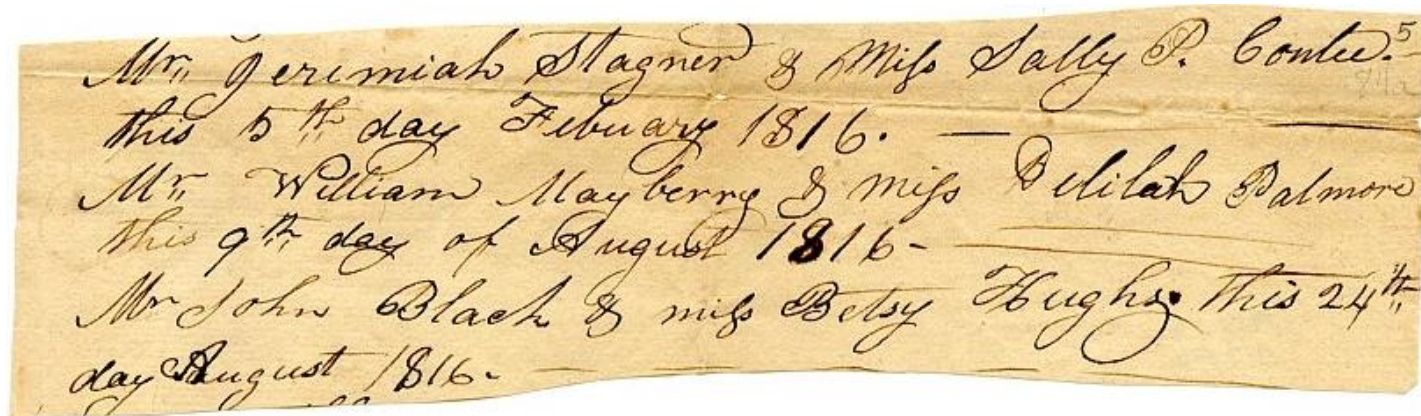 Mr. Jeremiah Stagner & Miss Sally P. Contee. 5
84a
this 5th day Febuary 1816. —
Mr. William Mayberry & miss Delilah Palmore
this 9th day of August 1816 -
Mr John Black & miss Betsy Hughs. this 24th
day August 1816 -